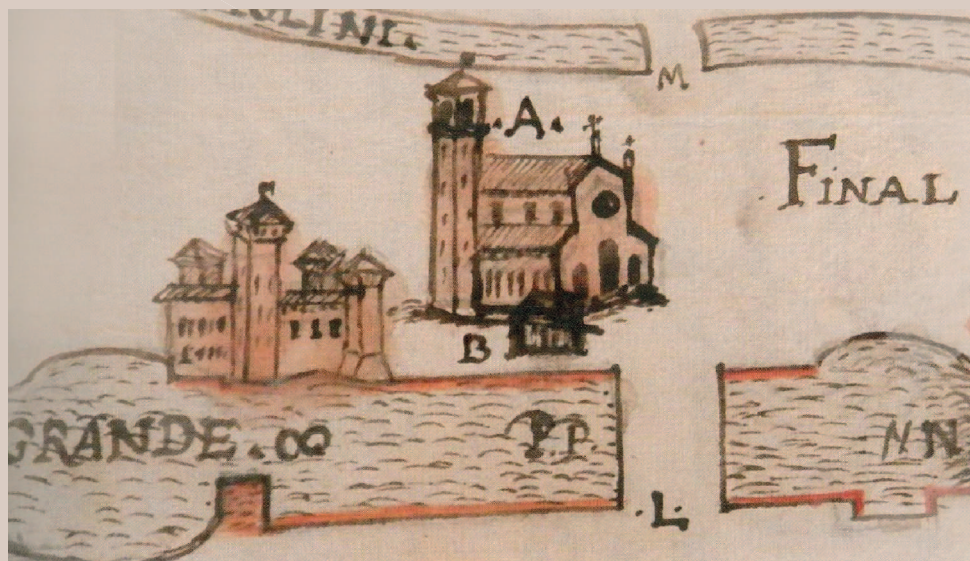 OLINI.
M
.A.
FINAL
B
GRANDE.∞
P.P.
NN
.L.